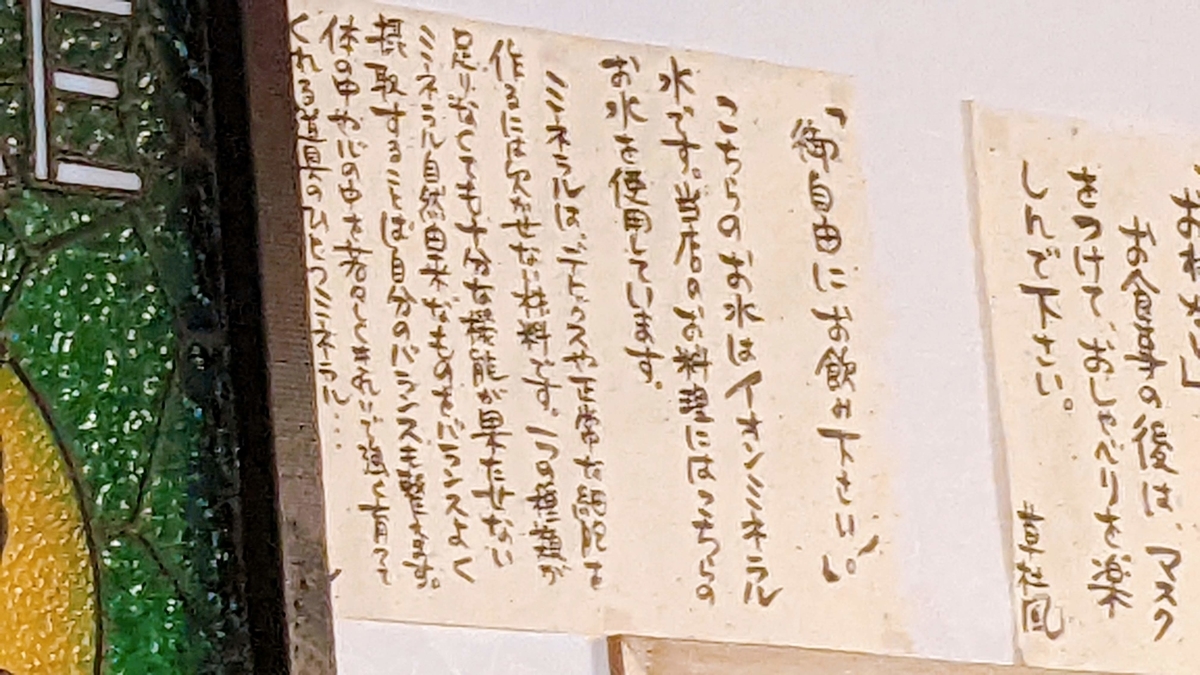 お食事の後は、マスク
をつけて、おしゃべりを楽
しんで下さい。
草枕風
"御自由にお飲み下さい。"
こちらのお水はイオンミネラル
水です。当店のお料理にはこちらの
お水を使用しています。
ミネラルは、デトックスや正常な細胞を
作るには欠かせない材料です。1つの種類が
足りなくても十分な機能が果たせない
ミネラル自然由来なものをバランスよく
摂取することは自分のバランスを整えます。
体の中や心の中を若々しくきれいで強く育って
くれる道具のひとつミネラル...